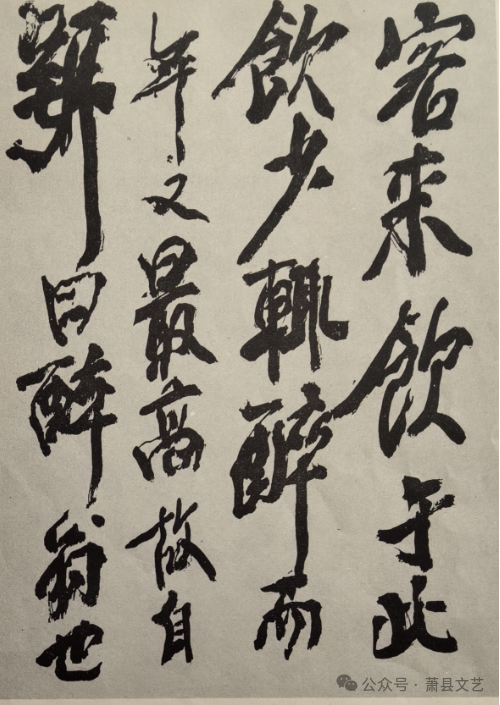 客来飲于此
飲少輒醉而
年又最高故自
號曰醉翁也
公众号·萧县文艺